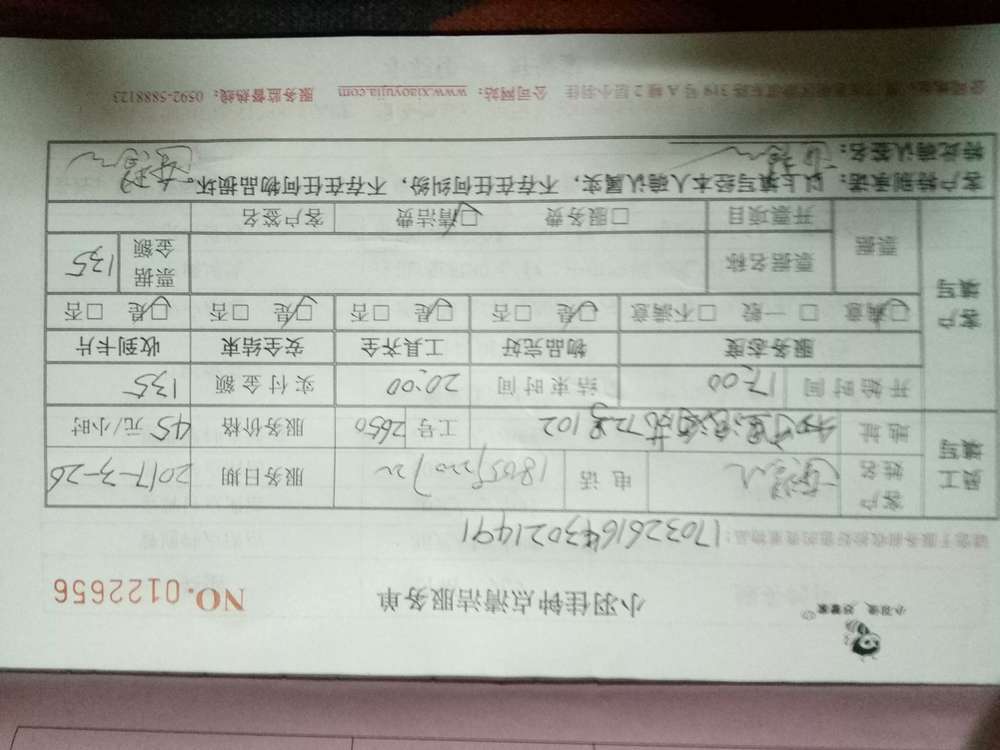 小羽佳 好管家
小羽佳钟点清洁服务单 NO.0122656
请您于服务前收捡好您的贵重物品! 1703261643021491
员工填写 客户姓名 电话 服务日期 2017-3-26
地址 102 工号 2650 服务价格 45元/小时
开始时间 17:00 结束时间 20:00 实付金额 135
客户填写 服务态度 物品完好 工具齐全 安全结束 收到卡片
☑满意 □一般 □不满意 ☑是 □否 ☑是 □否 ☑是 □否 ☑是 □否
票据 票据名称 票据金额 135
开票项目 □服务费 ☑清洁费 客户签名
客户特别承诺:以上填写经本人确认属实,不存在任何纠纷,不存在任何物品损坏。
特此确认签名:
公司网站:www.xiaoyujia.com 服务监督热线:0592-5888123